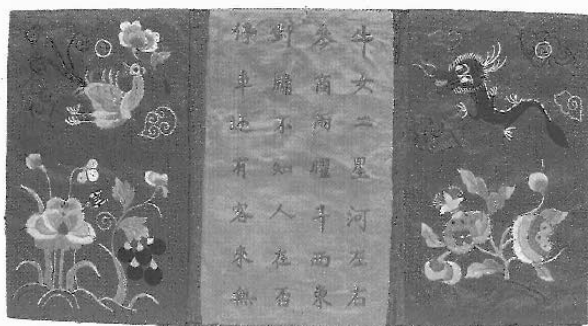 牛女二星河左右
參商兩曜斗西東
對牖不知人在否
停車有客來無